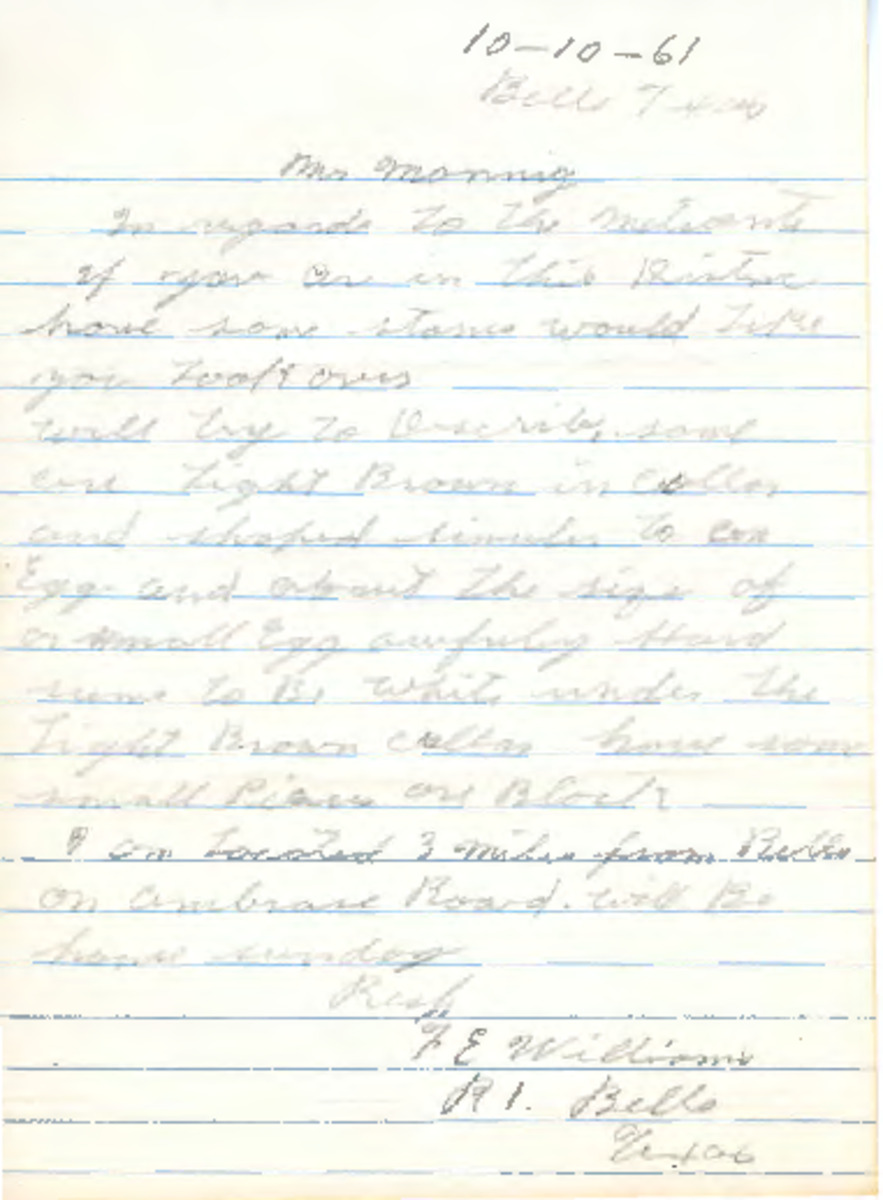 10-10-61
Bells Texas
Mr Monnig
In regards to the
If you are in this
have some stones would like
you look over
will try to Describe, some
are Light Brown in collor
and shaped to an
Egg and about the size of
a small Egg awfuly Hard
seems to Be White under the
Light Brown collor have some
small Pieces are Black
I am Located 3 miles from Bells
on Ambrose Road. Will Be
home sunday
Resp
F E Williams
R 1. Bells
Texas